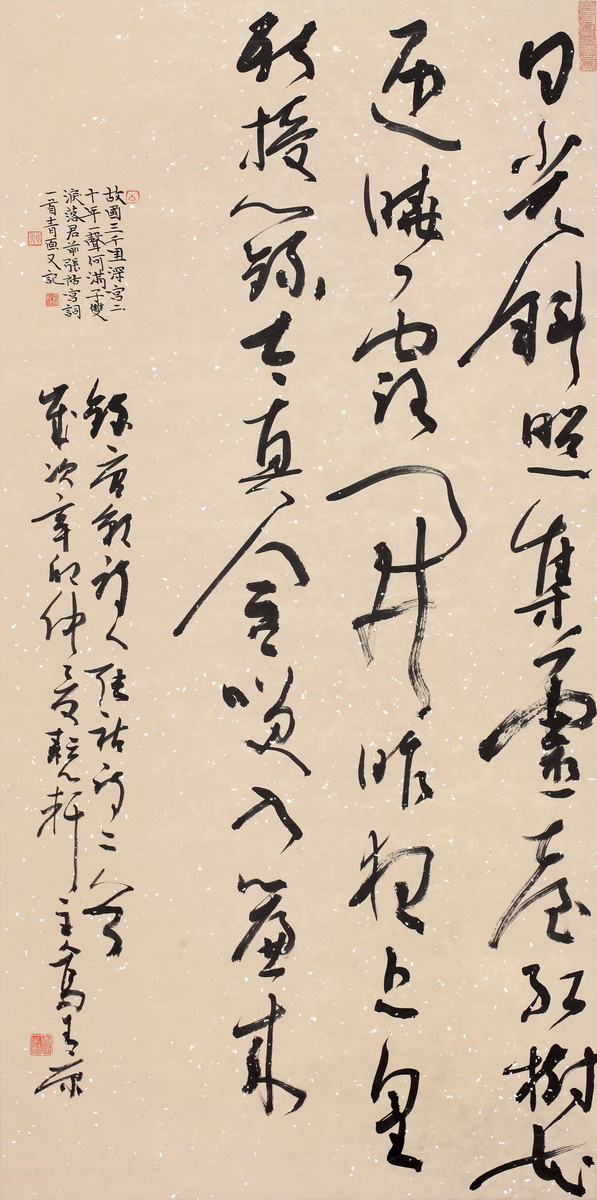 日光斜照集靈臺紅樹花
迎曉露開昨夜上皇
新授籙太真含咲入簾來
故國三千里深宮二
十年一聲何滿子雙
淚落君前張祜宮詞
一首青又記
錄唐朝詩人張祜詩二首
歲次辛卯仲夏軒主人青